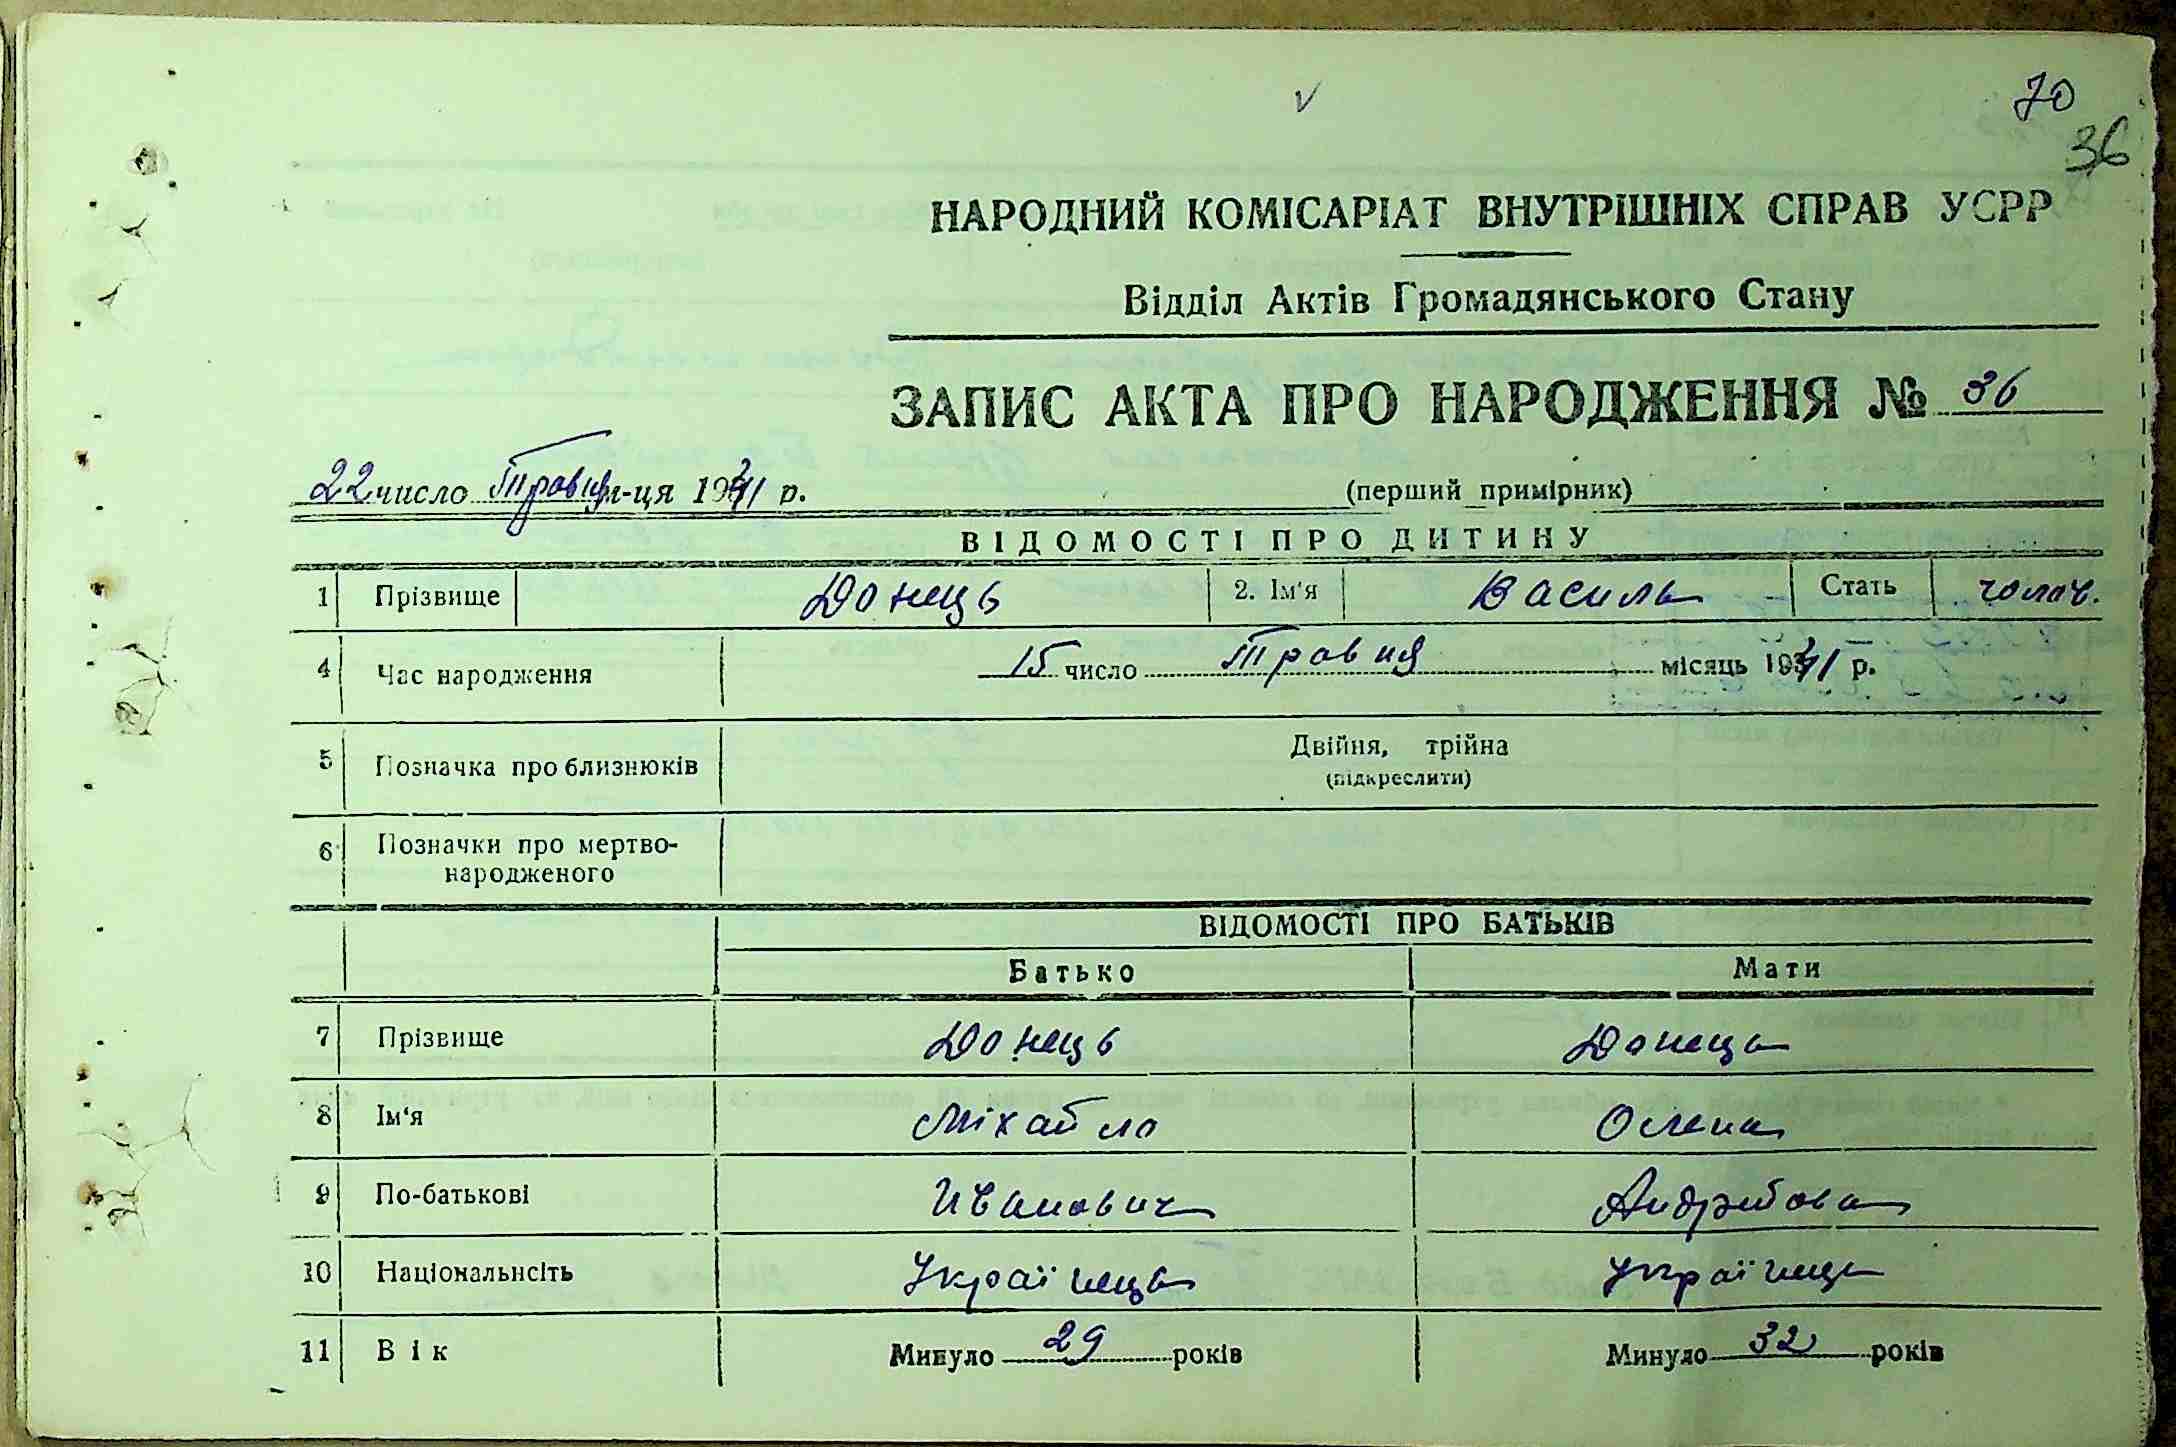 70
36
НАРОДНИЙ КОМІСАРІАТ ВНУТРІШНІХ СПРАВ УСРР
Відділ Актів Громадянського Стану
ЗАПИС АКТА ПРО НАРОДЖЕННЯ № 36
22 число Травня м-ця 1941 р. (перший примірник)
ВІДОМОСТІ ПРО ДИТИНУ
1 Прізвище Донець 2. Ім'я Василь Стать чолов.
4 Час народження 15 число Травня місяць 1941 р.
5 Позначка про близнюків Двійня, трійна
(підкреслити)
6 Позначки про мертво-
народженого
ВІДОМОСТІ ПРО БАТЬКІВ
Батько Мати
7 Прізвище Донець Донець
8 Ім'я Міхайло Олена
9 По-батькові Иванович Андрійовна
10 Національнсіть Українець Українець
11 Вік Минуло 29 років Минуло 32 років